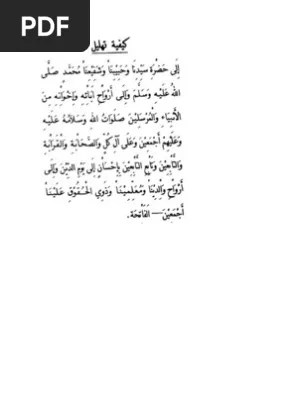 PDF
كيفية تهليل
إِلَى حَضْرَةِ سَيِّدِنَا وَحَبِيبِنَا وَشَفِيعِنَا مُحَمَّدٍ صَلَّى
اللهُ عَلَيْهِ وَسَلَّمَ وَإِلَى أَرْوَاحِ آبَائِهِ وَإِخْوَانِهِ مِنَ
الْأَنْبِيَاءِ وَالْمُرْسَلِينَ صَلَوَاتُ اللهِ وَسَلَامُهُ عَلَيْهِ
وَعَلَيْهِمْ أَجْمَعِينَ وَعَلَى آلِ كُلٍّ وَالصَّحَابَةِ وَالْقَرَابَةِ
وَالتَّابِعِينَ وَتَابِعِ التَّابِعِينَ بِإِحْسَانٍ إِلَى يَوْمِ الدِّيْنِ وَإِلَى
أَرْوَاحِ وَالِدِيْنَا وَمُعَلِّمِيْنَا وَذَوِي الْحُقُوْقِ عَلَيْنَا
أَجْمَعِيْنَ — الْفَاتِحَة.